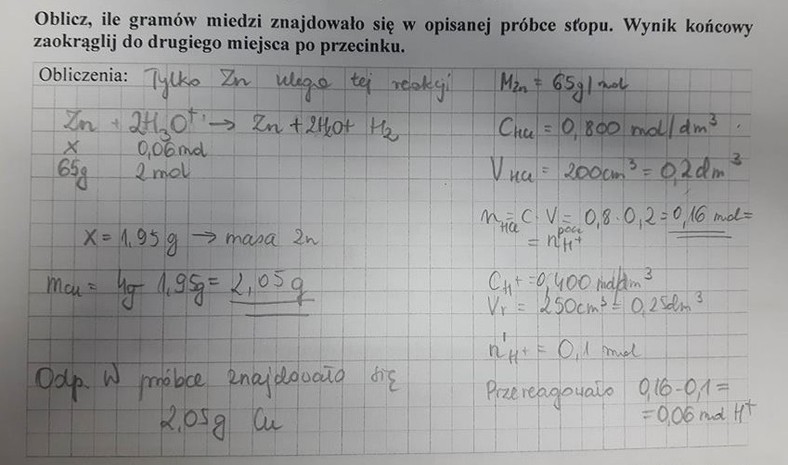 Oblicz, ile gramów miedzi znajdowało się w opisanej próbce stopu. Wynik końcowy
zaokrąglij do drugiego miejsca po przecinku.
Obliczenia: Tylko Zn ulega tej reakcji
Zn + 2H₃O⁺ → Zn + 2H₂O + H₂
x 0,06 mol
65g 2 mol
x = 1,95 g → masa Zn
mcu = 4g - 1,95g = 2,05 g
Odp. W próbce znajdowało się
2,05g Cu
Mzn = 65g/mol
CHCl = 0,800 mol/dm³
VHCl = 200cm³ = 0,2dm³
nHCl = C · V = 0,8 · 0,2 = 0,16 mol =
= nH⁺ pocz
CH⁺ = 0,400 mol/dm³
Vr = 250cm³ = 0,25dm³
n'H⁺ = 0,1 mol
Przereagowało 0,16-0,1 =
= 0,06 mol H⁺